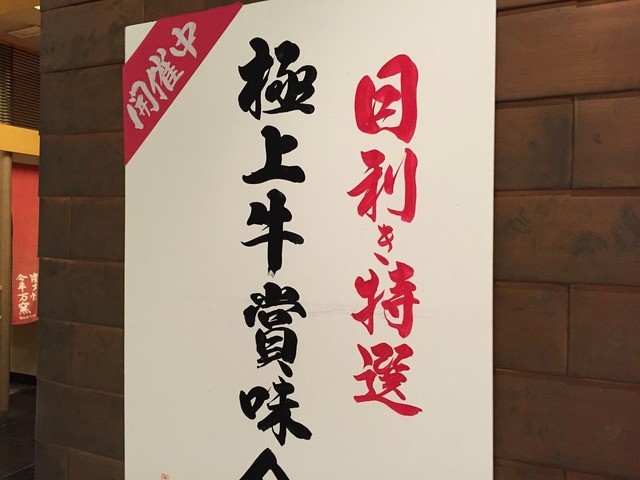 開催中
目利き特選
極上牛賞味